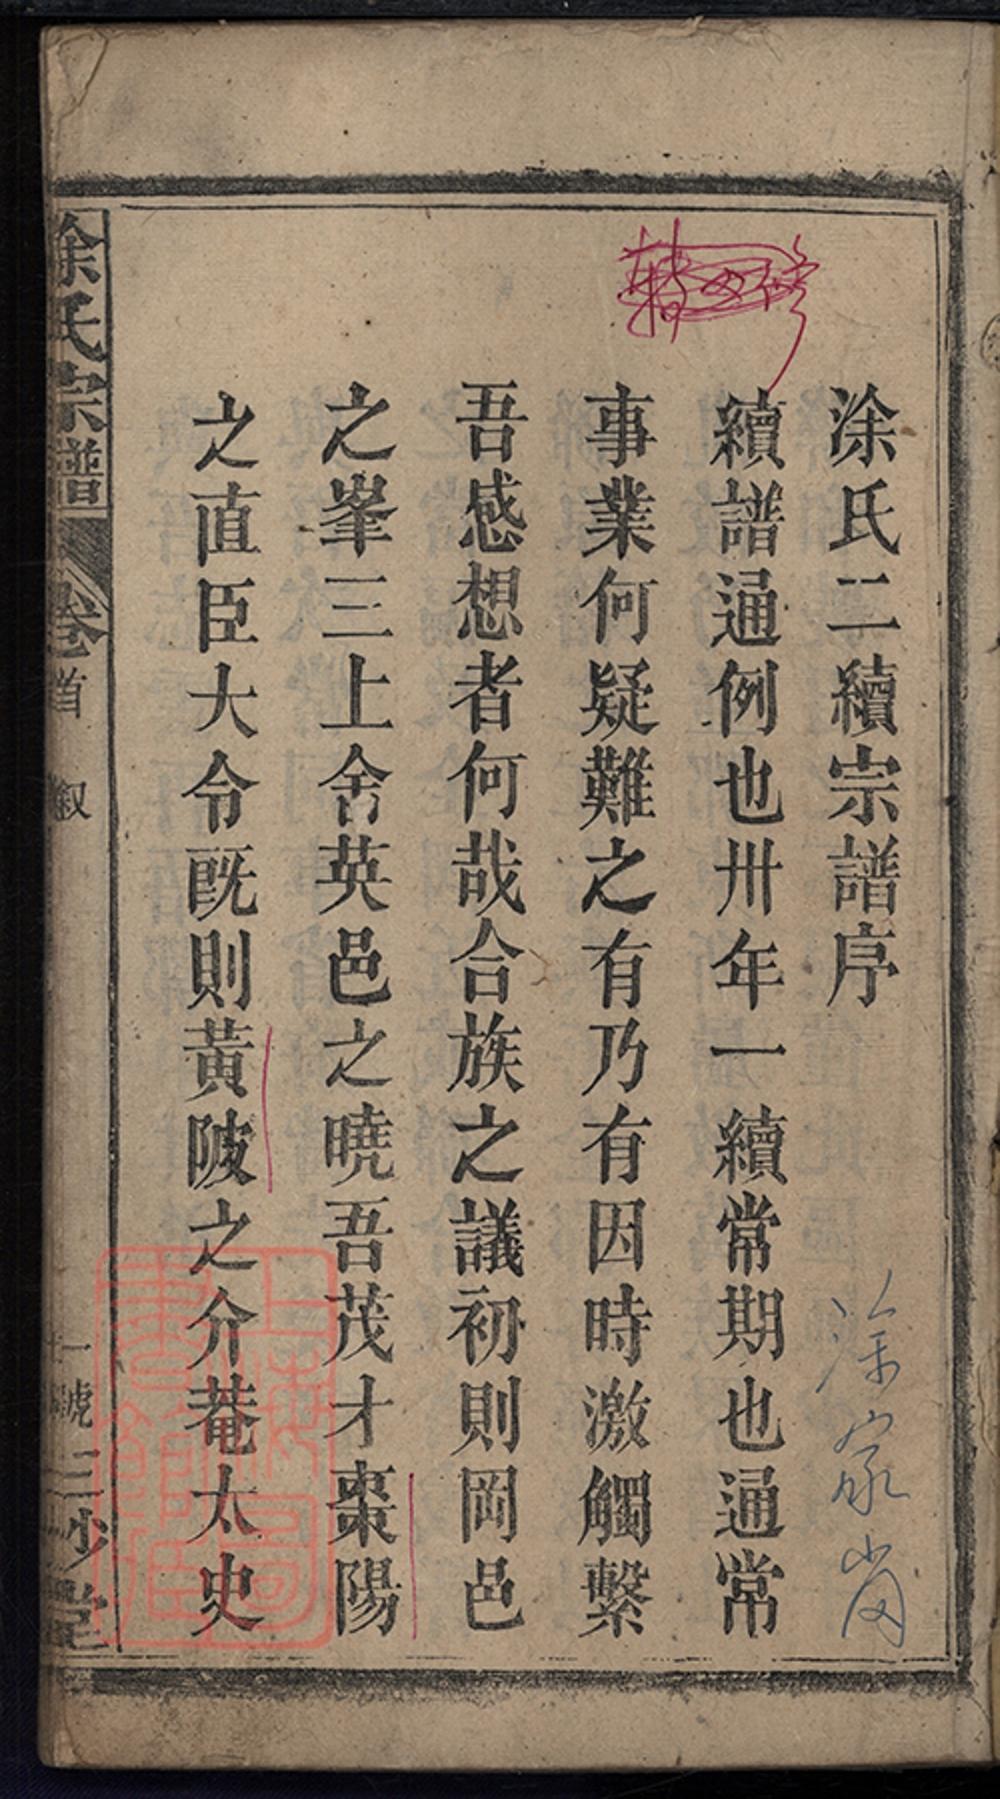 涂氏二續宗譜序
續譜通例也卅年一續常期也通常
事業何疑難之有乃有因時激觸繫
吾感想者何哉合族之議初則岡邑
之峯三上舍英邑之曉吾茂才棗陽
之直臣大令旣則黃陂之介菴太史
涂氏宗譜
卷首
叙
三沙堂
涂家岗
上海圖書館藏